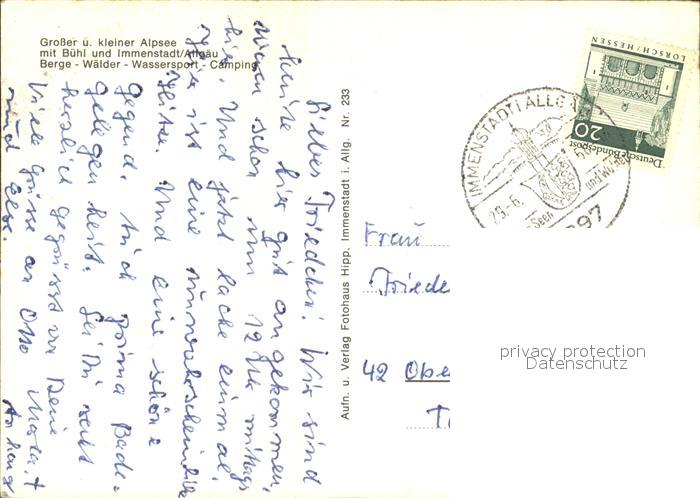 Großer u. kleiner Alpsee
mit Bühl und Immenstadt/Allgäu
Berge - Wälder - Wassersport - Camping
Liebes Friedchen! Wir sind
heute hier gut angekommen,
waren schon um 12 Uhr mittags
hier. Und jetzt lache einmal.
Hier ist eine unwahrscheinliche
Hitze. Und eine schöne
Gegend. Auch prima Bade-
gelegenheit. Sei Du selbst
herzlich gegrüsst von Deine
Viele Grüsse an Otto
und Else.
Aufn. u. Verlag Fotohaus Hipp, Immenstadt i. Allg. Nr. 233
LORSCH/HESSEN
20
Deutsche Bundespost
IMMENSTADT I ALLG
Seen
und
Frau
Friede
42 Obe
privacy protection
Datenschutz